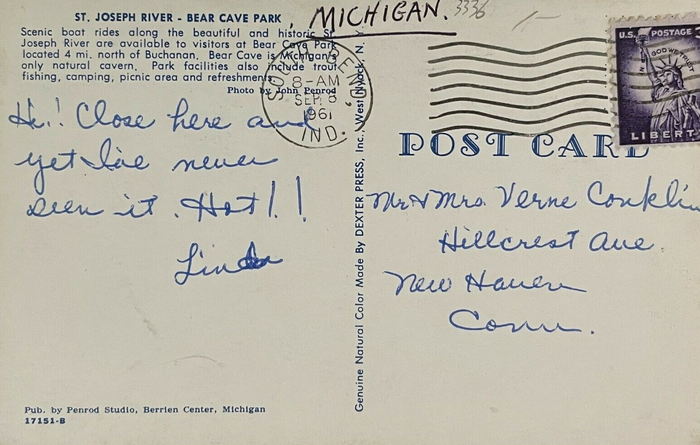 ST. JOSEPH RIVER - BEAR CAVE PARK, MICHIGAN.
3336
1/-
Scenic boat rides along the beautiful and historic St.
Joseph River are available to visitors at Bear Cave Park
located 4 mi. north of Buchanan. Bear Cave is Michigan's
only natural cavern. Park facilities also include trout
fishing, camping, picnic area and refreshments.
Photo by John Penrod
SOUTH BEND
8-AM
SEP 8
1961
IND.
U.S. POSTAGE
IN GOD WE TRUST
LIBERTY
POST CARD
Hi! Close here and
yet I've never
seen it. Hot!!
Linda
Genuine Natural Color Made By DEXTER PRESS, Inc., West Nyack, N. Y.
Mr & Mrs. Verne Conklin
Hillcrest Ave.
New Haven
Conn.
Pub. by Penrod Studio, Berrien Center, Michigan
17151-B